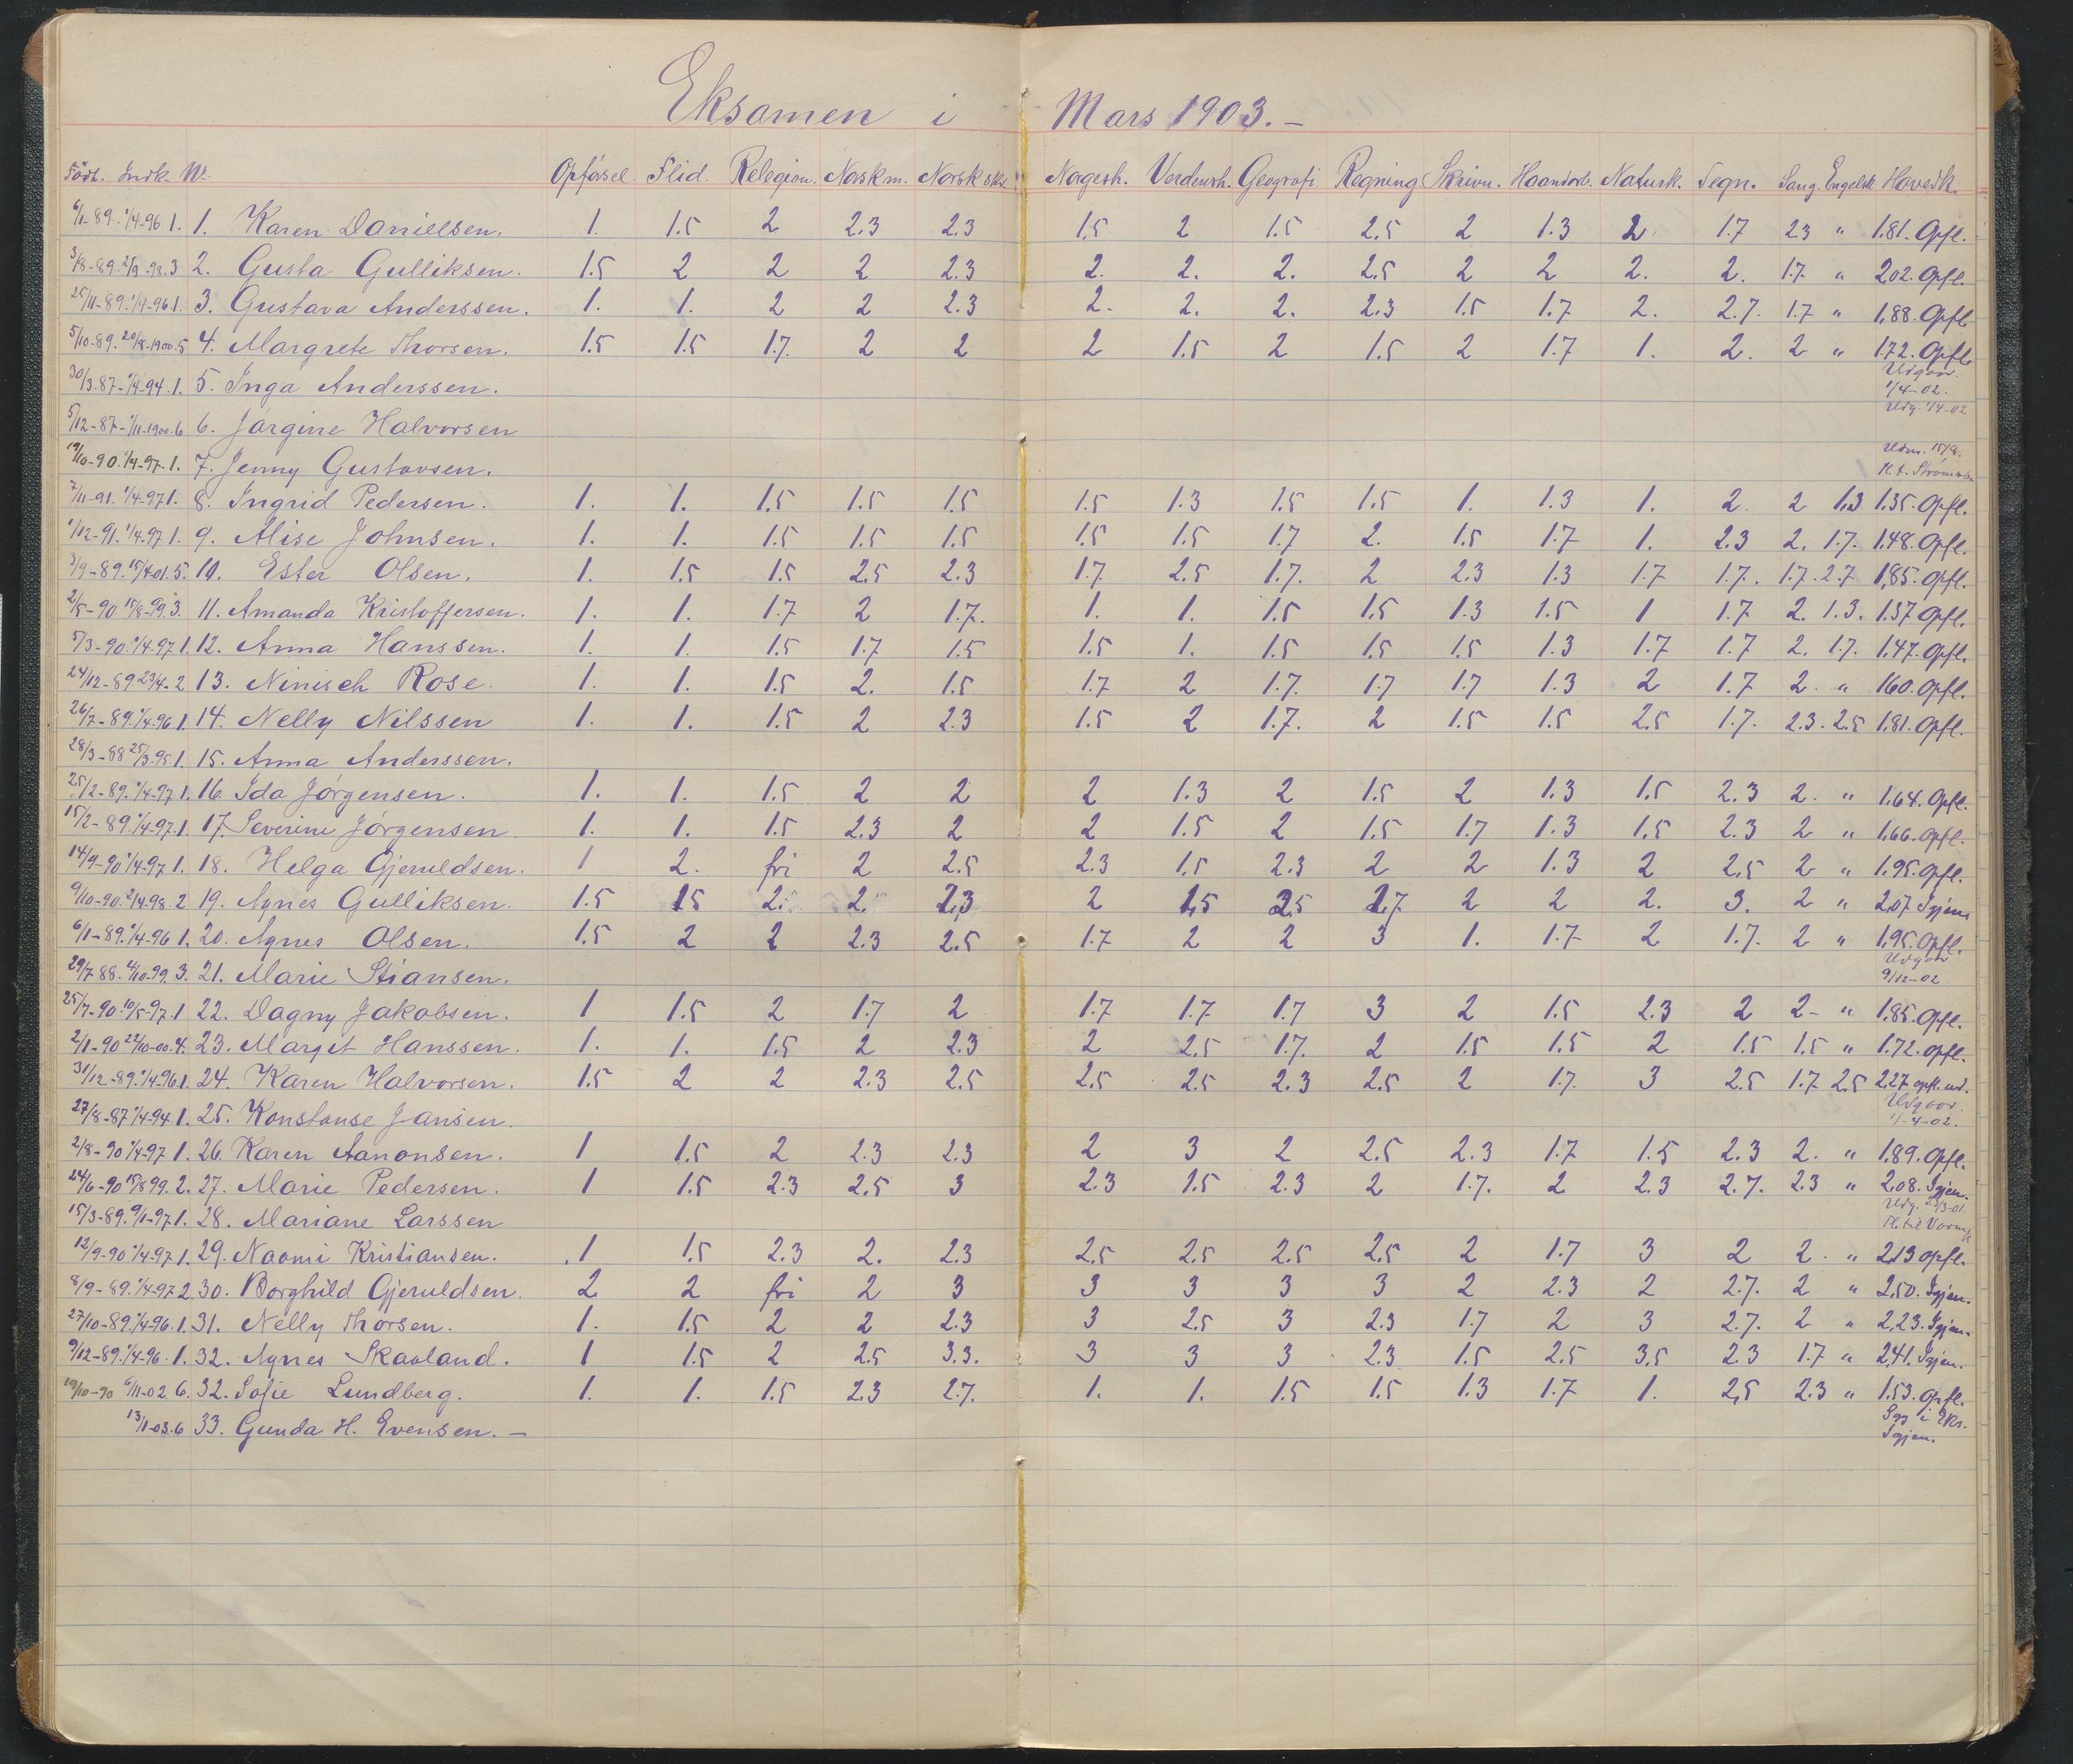 Eksamen i Mars 1903. –
Födt. Indk. Nr. Opförsel. Flid. Relegion. Norsk m. Norsk skr. Norgesh. Verdensh. Geografi. Regning Skrivn. Haandarb. Naturk. Tegn. Sang. Engelsk Hovedk.
6/1-89. 1/4-96 1. 1. Karen Danielsen. 1. 1.5 2 2.3 2.3 1.5 2 1.5 2.5 2 1.3 2 1.7 2.3 " 1.81. Opfl.
3/8-89. 2/9-98. 3 2. Gusta Gulliksen. 1.5 2 2 2 2.3 2. 2. 2. 2.5 2 2 2. 2. 1.7. " 2.02. Opfl.
25/11-89. 1/4-96. 1. 3. Gustava Anderssen. 1. 1. 2 2 2.3 2. 2. 2. 2.3 1.5 1.7 2. 2.7. 1.7 " 1.88. Opfl.
5/10-89. 20/8-1900. 5 4. Margrete Thorsen. 1.5 1.5 1.7. 2 2 2 1.5 2 1.5 2 1.7 1. 2. 2 " 1.72. Opfl.
30/3.87- 1/4-94. 1. 5. Inga Anderssen. Udgaar. 1/4-02.
5/12-87- 1/11-1900. 6 6. Jörgine Halvorsen Udg. 1/4-02
19/10-90. 1/4-97. 1. 7. Jenny Gustavsen. Udm. 15/9.
7/11-91. 1/4-97 1. 8. Ingrid Pedersen. 1. 1. 1.5 1.5 1.5 1.5 1.3 1.5 1.5 1. 1.3 1. 2. 2 1.3 1.35. Opfl.
1/12-91. 1/4-97 1. 9. Alise Johnsen. 1. 1. 1.5 1.5 1.5 1.5 1.5 1.7 2. 1.5 1.7 1. 2.3 2. 1.7. 1.48. Opfl.
3/9-89. 15/4-01. 5. 10. Ester Olsen. 1. 1.5 1.5 2.5 2.3 1.7. 2.5 1.7. 2 2.3 1.3 1.7 1.7. 1.7. 2.7 1.85. Opfl.
2/5-90 15/8-99. 3. 11. Amanda Kristoffersen. 1. 1. 1.7 2 1.7. 1. 1. 1.5 1.5 1.3 1.5 1 1.7 2. 1.3. 1.37 Opfl.
5/3-90. 1/4-97 1. 12. Anna Hanssen. 1. 1. 1.5 1.7 1.5 1.5 1. 1.5 1.5 1.5 1.3 1.7 1.7 2. 1.7. 1.47. Opfl.
24/12-89. 23/4- 2 13. Ninisch Rose. 1. 1. 1.5 2. 1.5 1.7 2 1.7. 1.7 1.7 1.3 2 1.7 2. " 1.60. Opfl.
26/7-89. 1/4-96. 1. 14. Nelly Nilssen 1. 1. 1.5 2 2.3 1.5 2 1.7. 2 1.5 1.5 2.5 1.7. 2.3. 2.5 1.81. Opfl.
28/3-88 25/3-95. 1. 15. Anna Anderssen.
25/2-89. 1/4-97 1. 16. Ida Jörgensen. 1. 1. 1.5 2 2 2 1.3 2 1.5 2 1.3 1.5 2.3 2. " 1.64. Opfl.
15/2-89. 1/4-97. 1. 17. Severine Jörgensen 1. 1. 1.5 2.3 2 2 1.5 2 1.5 1.7 1.3 1.5 2.3 2 " 1.66. Opfl.
14/9-90 1/4-97 1. 18. Helga Gjeruldsen. 1 2. fri 2 2.5 2.3 1.5 2.3 2 2 1.3 2 2.5 2 " 1.95. Opfl.
9/10-90. 2/4-98. 2 19. Agnes Gulliksen. 1.5 1.5 2. 2. 2.3 2 1.5 2.5 1.7 2 2 2. 3. 2 " 2.07 Igjen.
6/1-89. 1/4-96 1. 20. Agnes Olsen. 1.5 2 2 2.3 2.5 1.7 2 2 3 1. 1.7 2 1.7. 2 " 1.95. Opfl.
29/7-88. 4/10-99. 3. 21. Marie Stiansen. Udgaar 9/12-02
25/7-90. 10/5-97. 1 22. Dagny Jakobsen. 1 1.5 2 1.7 2 1.7 1.7 1.7 3 2 1.5 2.3 2 2- " 1.85. Opfl.
2/1-90 22/10-00. 4. 23. Margit Hanssen. 1. 1. 1.5 2 2.3 2 2.5 1.7. 2 1.5 1.5 2 1.5 1.5 " 1.72. opfl.
31/12-89. 1/4-96. 1. 24. Karen Halvorsen. 1.5 2 2 2.3 2.5 2.5 2.5 2.3 2.5 2 1.7. 3 2.5 1.7 2.5 2.27 opfl. ud.
27/8-87 1/4-94 1. 25. Konstanse Jansen. Udgaar. 1/-4-02.
2/8-90 1/4-97 1. 26. Karen Aanonsen. 1 1.5 2 2.3 2.3 2 3 2 2.5 2.3 1.7 1.5 2.3 2. " 1.89. Opfl.
24/6-90 15/8 99. 2. 27. Marie Pedersen. 1 1.5 2.3 2.5 3 2.3 1.5 2.3 2 1.7. 2 2.3 2.7. 2.3 " 2.08. Igjen.
15/3-89. 9/1-97 1. 28. Mariane Larssen Udg.
12/9-90 1/4-97 1. 29. Naomi Kristiansen. 1 1.5 2.3 2. 2.3 2.5 2.5 2.5 2.5 2 1.7 3 2 2. " 2.13 opfl.
8/9-89. 1/4-97 2 30. Borghild Gjeruldsen. 2 2 fri 2 3 3 3 3 3 2 2.3 2 2.7. 2 " 2.50. Igjen.
27/10-89. 1/4-96. 1. 31. Nelly Thorsen. 1. 1.5 2 2 2.3 3 2.5 3 2.3 1.7 2 3 2.7. 2 " 2.23. Igjen.
9/12-89. 1/4-96. 1. 32. Agnes Skaaland. 1 1.5 2 2.5 3.3. 3 3 3 2.3 1.5 2.5 3.5 2.3 1.7 " 2.41. Igjen.
19/10-90 6/11-02 6. 32. Sofie Lundberg. 1. 1. 1.5 2.3 2.7. 1. 1. 1.5 1.5 1.3 1.7 1. 2.5 2.3 " 1.53. opfl.
13/1-03. 6 33. Gunda H. Evensen. – Syg i Eks. Igjen.